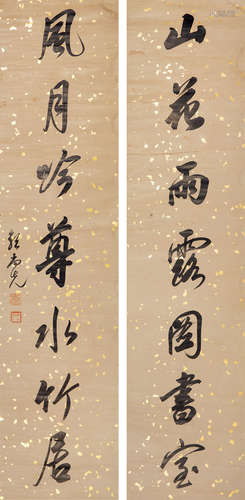 山花雨露图書室
風月吟尊水竹居